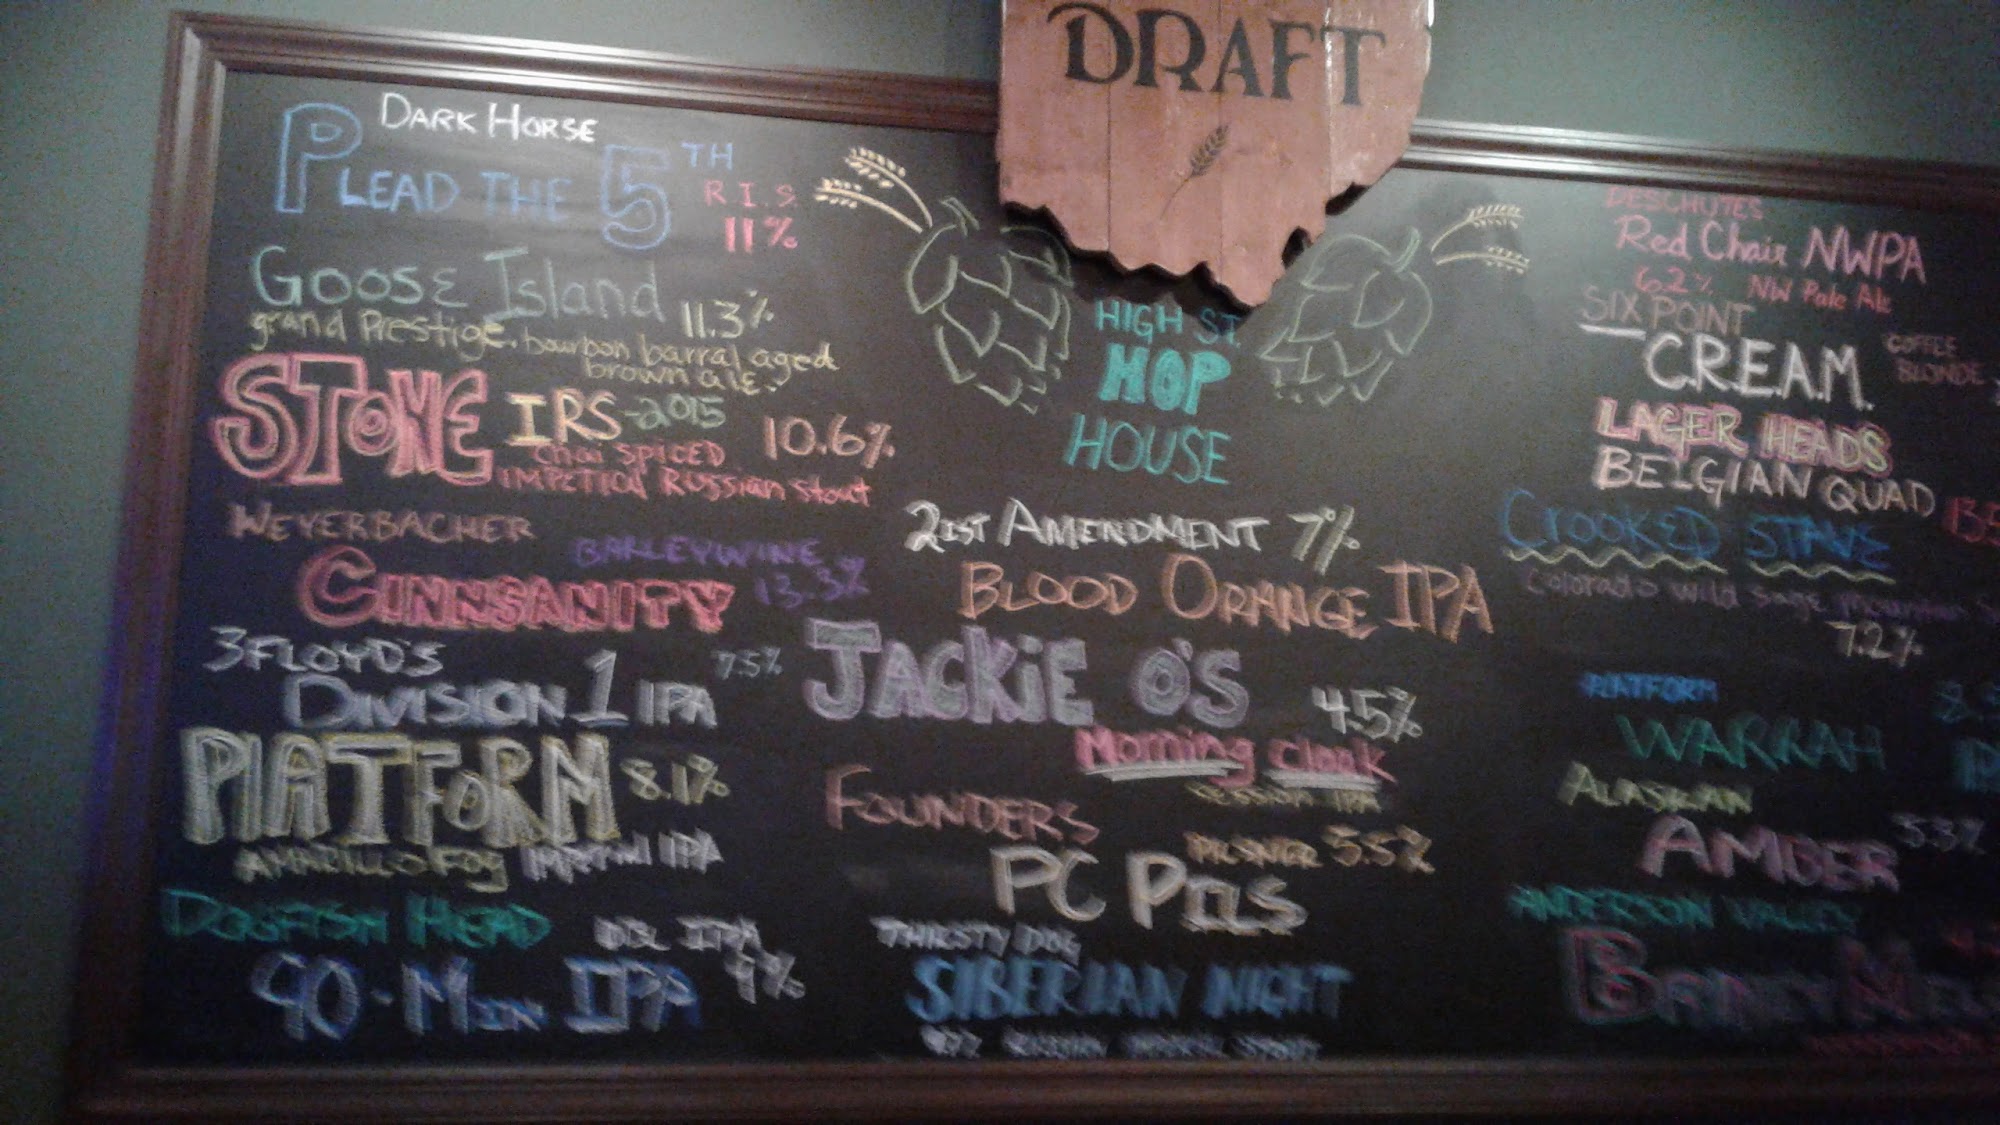 DRAFT
DARK HORSE
PLEAD THE 5TH
R.I.S.
11%
GOOSE Island
11.3%
grand Prestige. bourbon barral aged
brown ale.
STONE
IRS-2015
10.6%
chai SPICED
Russian Stout
WEYERBACHER
BARLEYWINE
13.3%
CINNSANITY
3FLOYD'S
7.5%
DIVISION 1 IPA
PLATFORM
8.1%
IPA
DOGFISH HEAD
DBL IPA
9%
90-MIN IPA
HIGH ST.
HOP
HOUSE
21ST AMENDMENT 7%
BLOOD ORANGE IPA
JACKiE O'S
4.5%
Morning cloak
SESSION IPA
FOUNDERS
PILSNER 5.5%
PC PILS
THIRSTY DOG
SIBERIAN NIGHT
RUSSIAN IMPERIAL STOUT
DESCHUTES
Red Chair NWPA
6.2% NW Pale Ale
SIXPOINT
C.R.E.A.M.
COFFEE
BLONDE
LAGER HEADS
BELGIAN QUAD
CROOKED STAVE
Colorado wild sage mountain
7.2%
PLATFORM
WARRAH
ALASKAN
AMBER
5.3%
ANDERSON VALLEY